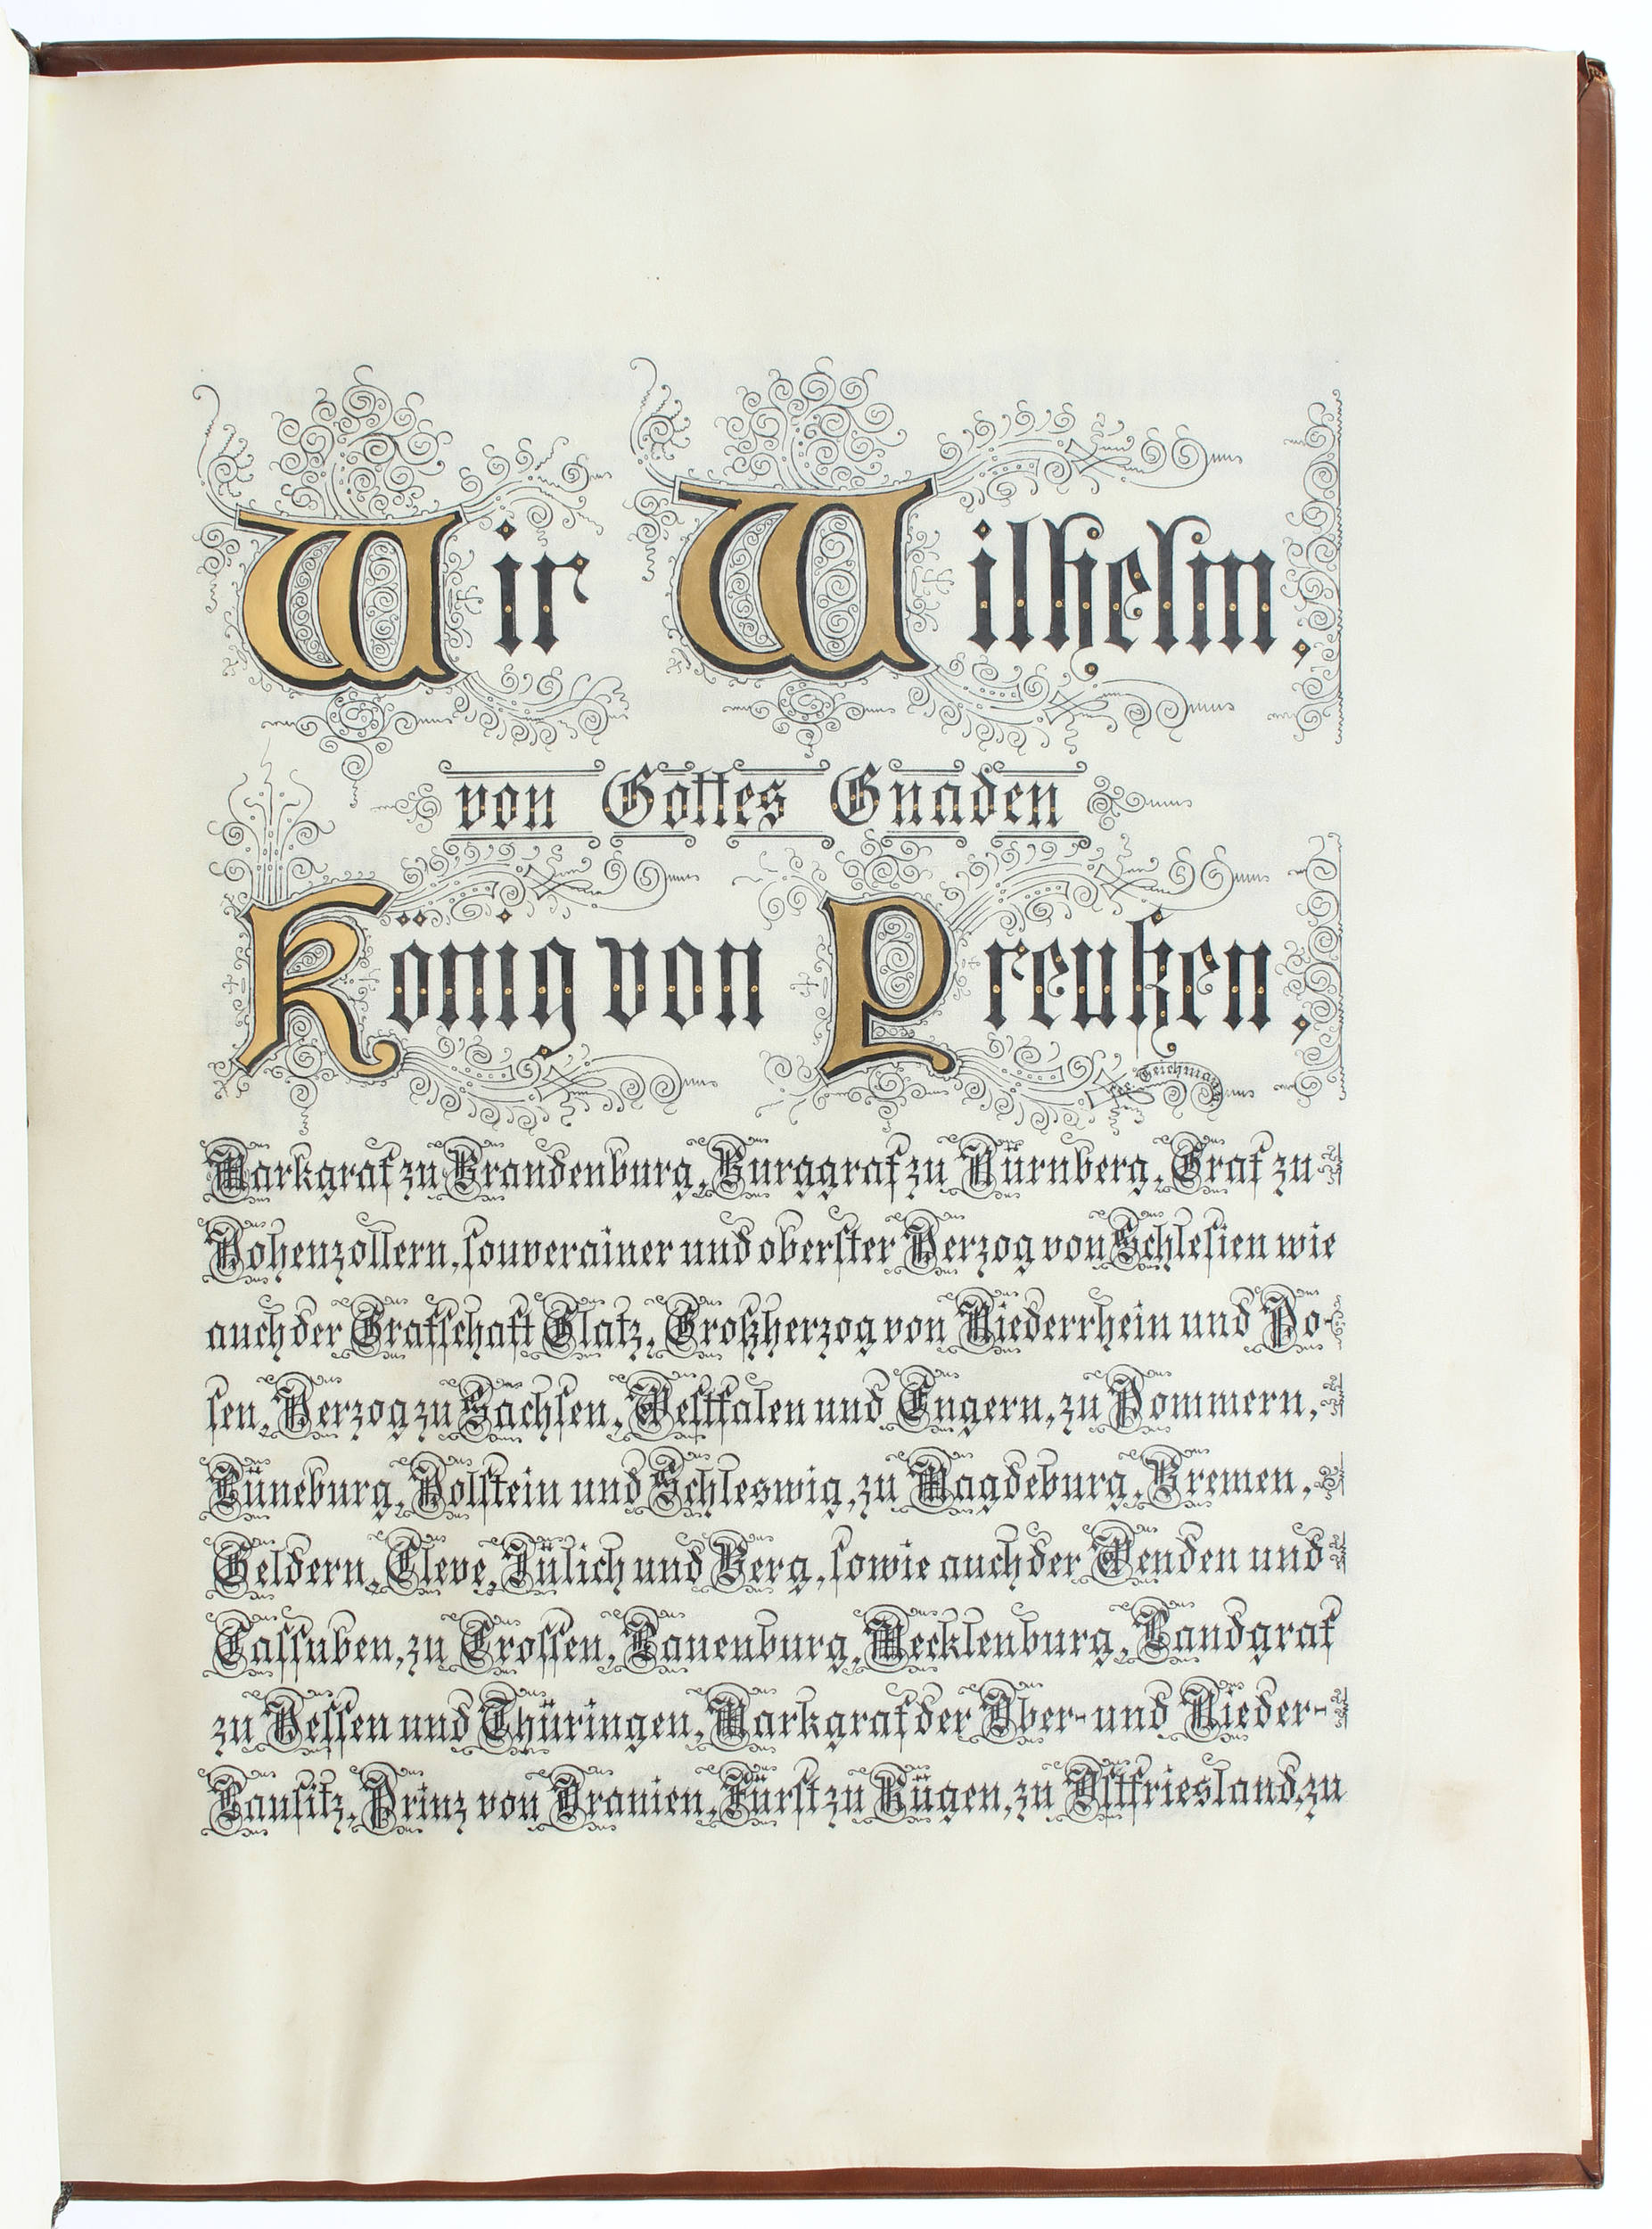 Wir Wilhelm,
von Gottes Gnaden
König von Preußen,
fec. Teichmann
Markgraf zu Brandenburg, Burggraf zu Nürnberg, Graf zu
Hohenzollern, souverainer und oberster Herzog von Schlesien wie
auch der Grafschaft Glatz, Großherzog von Niederrhein und Po-
sen, Herzog zu Sachsen, Westfalen und Engern, zu Pommern,
Lüneburg, Holstein und Schleswig, zu Magdeburg, Bremen,
Geldern, Cleve, Jülich und Berg, sowie auch der Wenden und
Cassuben, zu Crossen, Lauenburg, Mecklenburg, Landgraf
zu Hessen und Thüringen, Markgraf der Ober- und Nieder-
Lausitz, Prinz von Oranien, Fürst zu Rügen, zu Ostfriesland, zu